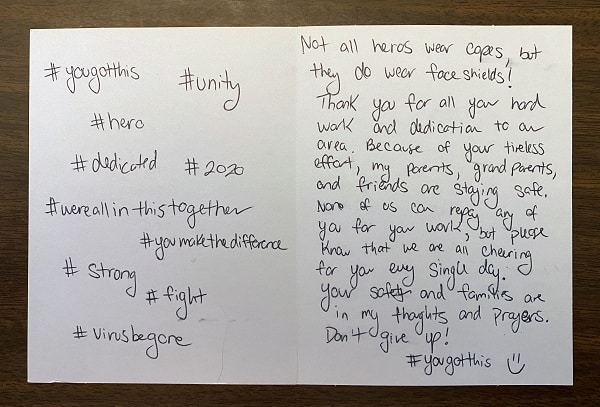 #yougotthis
#unity
#hero
#dedicated #2020
#wereallinthistogether
#youmakethedifference
# strong
# fight
#virusbegone
Not all heros wear capes, but
they do wear face shields!
Thank you for all your hard
work and dedication to our
area. Because of your tireless
effort, my parents, grandparents,
and friends are staying safe.
None of us can repay any of
you for your work, but please
know that we are all cheering
for you every single day.
Your safety and families are
in my thoughts and prayers.
Don't give up!
#yougotthis